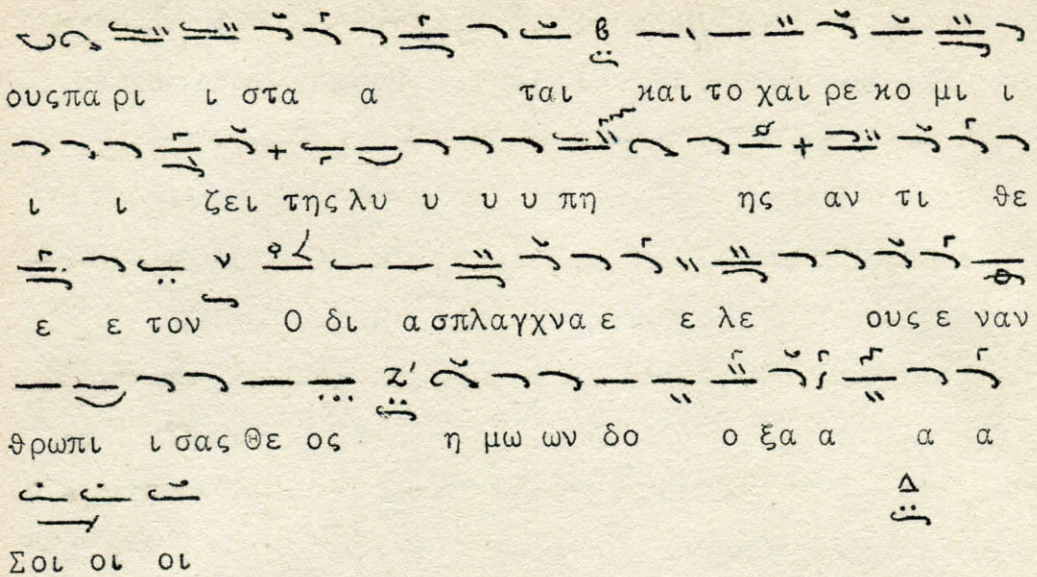 ους πα ρι ι στα α ται και το χαι ρε κο μι ι
ι ι ζει της λυ υ υ υ πη ης αν τι θε
ε ε τον Ο δι α σπλαγχνα ε ε λε ους ε ναν
θρωπι ι σας Θε ος η μω ων δο ο ξα α α α
Σοι οι οι